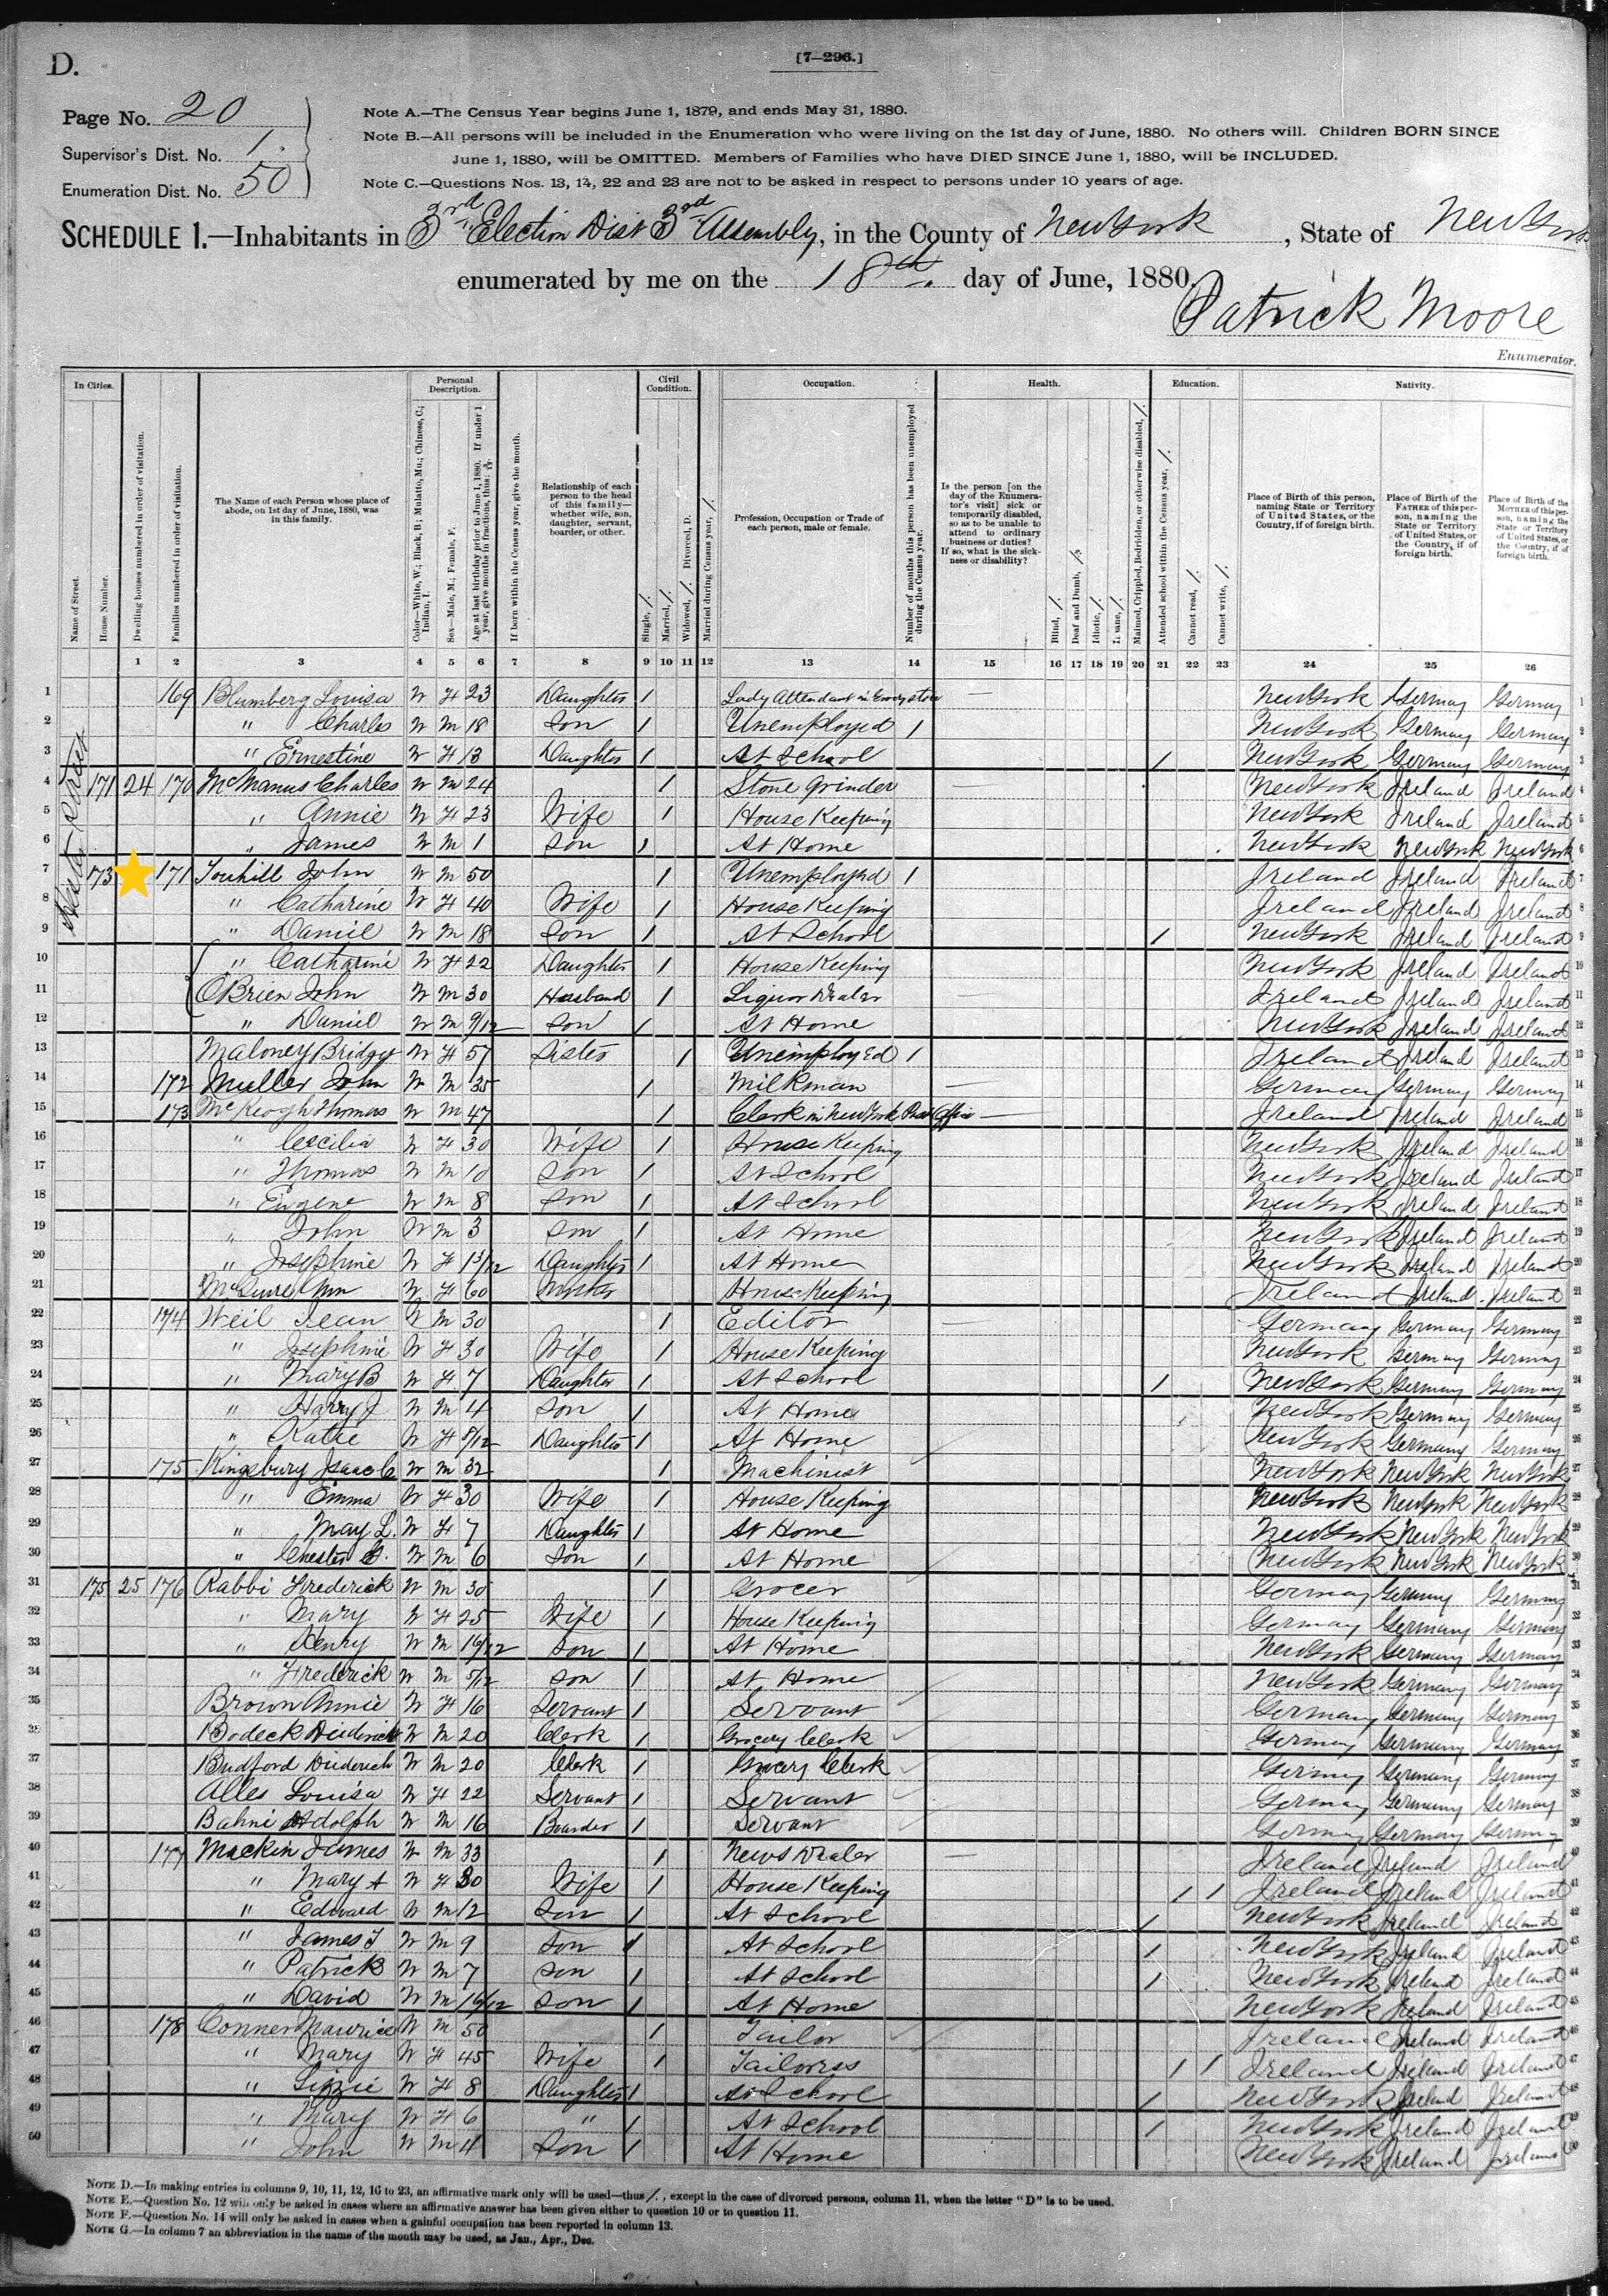 D.
[7—296.]
Page No. 20
Supervisor's Dist. No. 1.
Enumeration Dist. No. 50
Note A.—The Census Year begins June 1, 1879, and ends May 31, 1880.
Note B.—All persons will be included in the Enumeration who were living on the 1st day of June, 1880. No others will. Children BORN SINCE
June 1, 1880, will be OMITTED. Members of Families who have DIED SINCE June 1, 1880, will be INCLUDED.
Note C.—Questions Nos. 13, 14, 22 and 23 are not to be asked in respect to persons under 10 years of age.
SCHEDULE 1.—Inhabitants in 3rd Election Dist 3rd Assembly, in the County of New York, State of New York
enumerated by me on the 18th. day of June, 1880.
Patrick Moore
Enumerator.
In Cities. Personal Description. Civil Condition. Occupation. Health. Education. Nativity.
Name of Street.
House Number.
Dwelling houses numbered in order of visitation.
Families numbered in order of visitation.
The Name of each Person whose place of abode, on 1st day of June, 1880, was in this family.
Color—White, W.; Black, B.; Mulatto, Mu.; Chinese, C.; Indian, I.
Sex—Male, M.; Female, F.
Age at last birthday prior to June 1, 1880. If under 1 year, give months in fractions, thus: 3/12
If born within the Census year, give the month.
Relationship of each person to the head of this family—whether wife, son, daughter, servant, boarder, or other.
Single, /.
Married, /.
Widowed, /. Divorced, D.
Married during Census year, /.
Profession, Occupation or Trade of each person, male or female.
Number of months this person has been unemployed during the Census year.
Is the person [on the day of the Enumerator's visit] sick or temporarily disabled, so as to be unable to attend to ordinary business or duties? If so, what is the sickness or disability?
Blind, /.
Deaf and Dumb, /.
Idiotic, /.
Insane, /.
Maimed, Crippled, Bedridden, or otherwise disabled, /.
Attended school within the Census year, /.
Cannot read, /.
Cannot write, /.
Place of Birth of this person, naming State or Territory of United States, or the Country, if of foreign birth.
Place of Birth of the FATHER of this person, naming the State or Territory of United States, or the Country, if of foreign birth.
Place of Birth of the MOTHER of this person, naming the State or Territory of United States, or the Country, if of foreign birth.
1 2 3 4 5 6 7 8 9 10 11 12 13 14 15 16 17 18 19 20 21 22 23 24 25 26
1 169 Blumberg Louisa W F 23 Daughter / Lady Attendant in store New York Germany Germany 1
2 " Charles W M 18 Son / Unemployed / New York Germany Germany 2
3 " Ernestine W F 13 Daughter / At School / New York Germany Germany 3
4 171 24 170 McManus Charles W M 24 / Stone Grinder New York Ireland Ireland 4
5 " Annie W F 23 Wife / House Keeping New York Ireland Ireland 5
6 " James W M 1 Son / At Home New York New York New York 6
7 173 171 Touhill John W M 50 / Unemployed / Ireland Ireland Ireland 7
8 " Catharine W F 40 Wife / House Keeping Ireland Ireland Ireland 8
9 " Daniel W M 18 Son / At School / New York Ireland Ireland 9
10 " Catharine W F 22 Daughter / House Keeping New York Ireland Ireland 10
11 OBrien John W M 30 Husband / Liquor Dealer Ireland Ireland Ireland 11
12 " Daniel W M 9/12 Son / At Home New York Ireland Ireland 12
13 Maloney Bridgy W F 57 Sister / Unemployed / Ireland Ireland Ireland 13
14 172 Muller John W M 35 / Milkman Germany Germany Germany 14
15 173 McKeogh Thomas W M 47 / Clerk in New York Post Office Ireland Ireland Ireland 15
16 " Cecilia W F 30 Wife / House Keeping New York Ireland Ireland 16
17 " Thomas W M 10 Son / At School New York Ireland Ireland 17
18 " Eugene W M 8 Son / At School New York Ireland Ireland 18
19 " John W M 3 Son / At Home New York Ireland Ireland 19
20 " Josephine W F 13/12 Daughter / At Home New York Ireland Ireland 20
21 McGuire Ann W F 60 Mother House Keeping Ireland Ireland Ireland 21
22 174 Weil Jean W M 30 / Editor Germany Germany Germany 22
23 " Josephine W F 30 Wife / House Keeping New York Germany Germany 23
24 " Mary B W F 7 Daughter / At School / New York Germany Germany 24
25 " Harry J W M 4 Son / At Home New York Germany Germany 25
26 " Katie W F 8/12 Daughter / At Home New York Germany Germany 26
27 175 Kingsbury Isaac C W M 32 / Machinist New York New York New York 27
28 " Emma W F 30 Wife / House Keeping New York New York New York 28
29 " May L. W F 7 Daughter / At Home New York New York New York 29
30 " Chester G. W M 6 Son / At Home New York New York New York 30
31 175 25 176 Rabbi Frederick W M 30 / Grocer Germany Germany Germany 31
32 " Mary W F 25 Wife / House Keeping Germany Germany Germany 32
33 " Henry W M 16/12 Son / At Home New York Germany Germany 33
34 " Frederick W M 5/12 Son / At Home New York Germany Germany 34
35 Brown Annie W F 16 Servant / Servant Germany Germany Germany 35
36 Bodeck Diederich W M 20 Clerk / Grocery Clerk Germany Germany Germany 36
37 Budford Diderich W M 20 Clerk / Grocery Clerk Germany Germany Germany 37
38 Alles Louisa W F 22 Servant / Servant Germany Germany Germany 38
39 Bahni Adolph W M 16 Boarder / Servant Germany Germany Germany 39
40 177 Mackin James W M 33 / News Dealer Ireland Ireland Ireland 40
41 " Mary A W F 30 Wife / House Keeping / / Ireland Ireland Ireland 41
42 " Edward W M 12 Son / At School / New York Ireland Ireland 42
43 " James T W M 9 Son / At School / New York Ireland Ireland 43
44 " Patrick W M 7 Son / At School / New York Ireland Ireland 44
45 " David W M 16/12 Son / At Home New York Ireland Ireland 45
46 178 Conner Maurice W M 50 / Tailor Ireland Ireland Ireland 46
47 " Mary W F 45 Wife / Tailoress / / Ireland Ireland Ireland 47
48 " Lizzie W F 8 Daughter / At School / New York Ireland Ireland 48
49 " Mary W F 6 " / At School / New York Ireland Ireland 49
50 " John W M 4 Son / At Home New York Ireland Ireland 50
Note D.—In making entries in columns 9, 10, 11, 12, 16 to 23, an affirmative mark only will be used—thus /, except in the case of divorced persons, column 11, when the letter "D" is to be used.
Note E.—Question No. 12 will only be asked in cases where an affirmative answer has been given either to question 10 or to question 11.
Note F.—Question No. 14 will only be asked in cases when a gainful occupation has been reported in column 13.
Note G.—In column 7 an abbreviation in the name of the month may be used, as Jan., Apr., Dec.